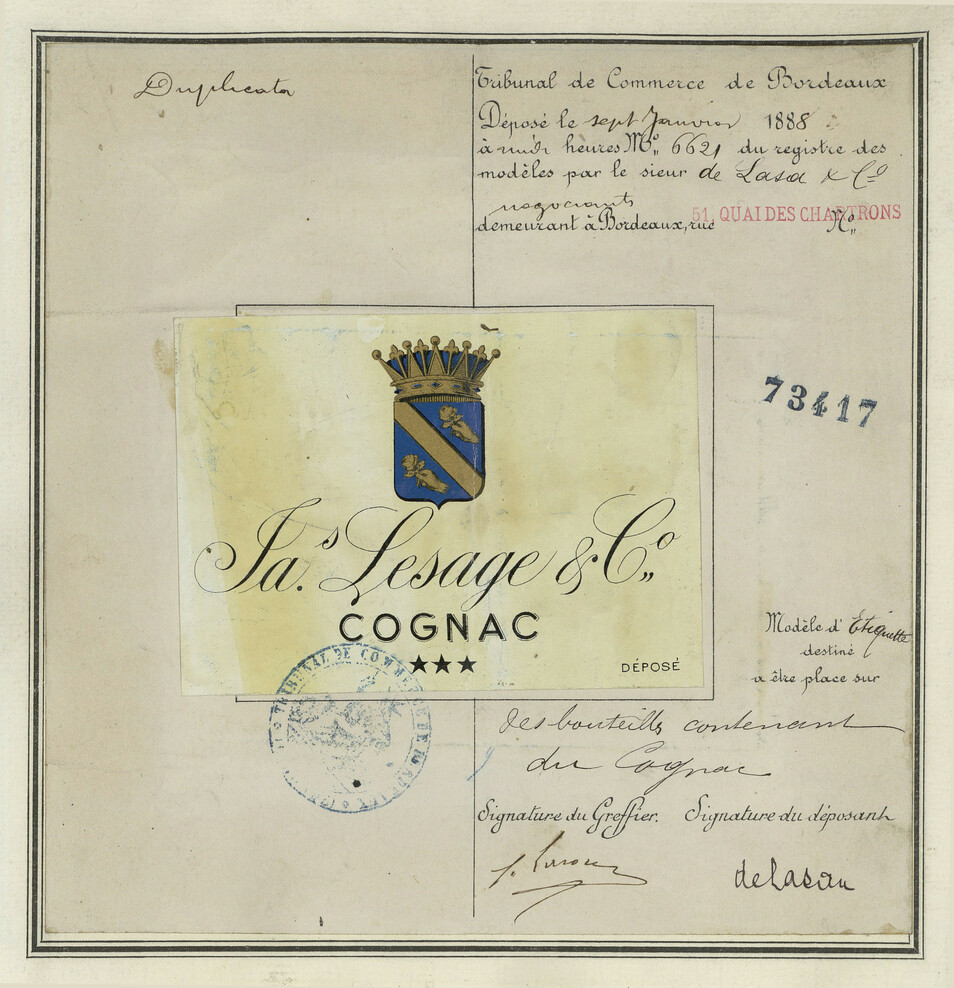 Duplicata
Tribunal de Commerce de Bordeaux
Déposé le sept Janvier 1888
à midi heures Nº 6621 du registre des
modèles par le sieur de Lasa & Cº
negociants
51, QUAI DES CHARTRONS
demeurant à Bordeaux, rue Nº
73417
Jas. Lesage & Cº
COGNAC
★★★
DÉPOSÉ
TRIBUNAL DE COMMERCE DE BORDEAUX
Modèle d'Etiquette
destiné
a être place sur
des bouteilles contenant
du Cognac
Signature du Greffier. Signature du déposant